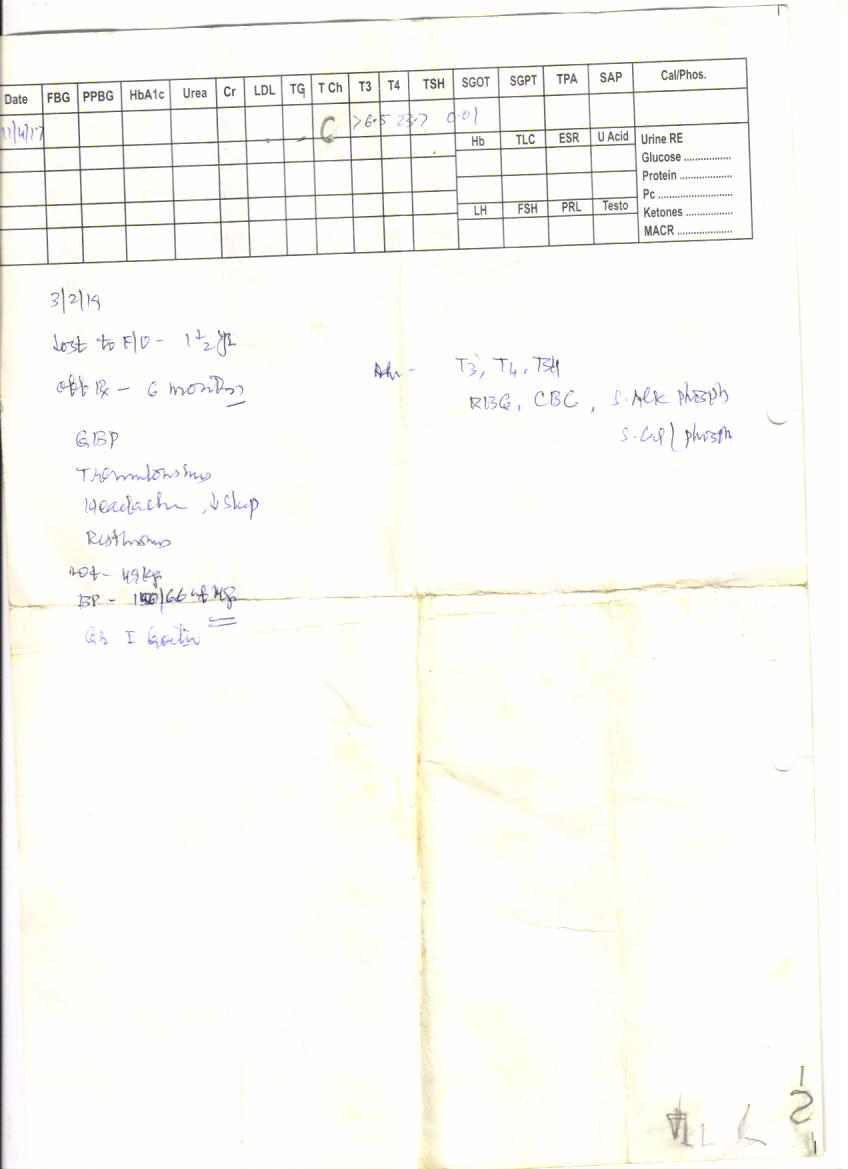 Date FBG PPBG HbA1c Urea Cr LDL TG T Ch T3 T4 TSH SGOT SGPT TPA SAP Cal/Phos.
11/4/17 C >6.5 23.7 0.01
Hb TLC ESR U Acid Urine RE
Glucose ................
Protein ..................
Pc .........................
LH FSH PRL Testo Ketones ................
MACR ...................
3/2/19
Lost to F/U - 1 1/2 yr
off Rx - 6 months
T3, T4, TSH
RBG, CBC, S. Alk phosph
S. Cal / phosph
GBP
Headache, ↓ Sleep
wt - 49 kg
BP - /66
Gr I Goitre